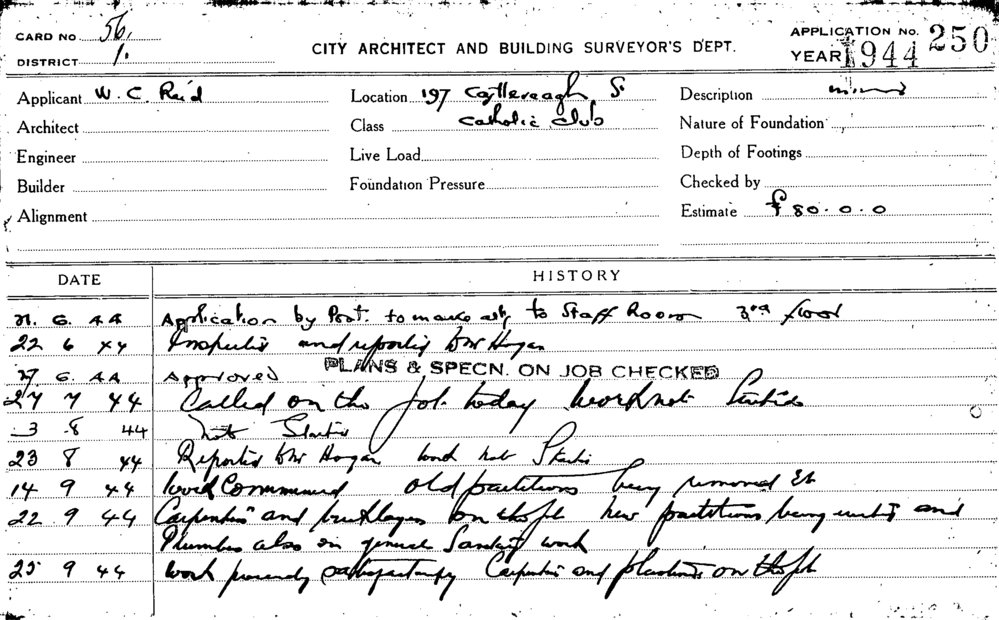 CARD NO 56,
DISTRICT 1.
CITY ARCHITECT AND BUILDING SURVEYOR'S DEPT.
APPLICATION NO. 250
YEAR 1944
Applicant W. C. Reid
Location 197 Castlereagh St
Description
Architect
Class Catholic Club
Nature of Foundation
Engineer
Live Load
Depth of Footings
Builder
Foundation Pressure
Checked by
Alignment
Estimate £80.0.0
DATE HISTORY
21. 6. 44 Application by Prot. to make alts to Staff Room 3rd floor
22 6 44 Inspected and reported to Mr Hogan
6. 44 Approved PLANS & SPECN. ON JOB CHECKED
27 7 44 Called on the Job today work not Started
3 8 44 not Started
23 8 44 Reported to Mr Hogan work not Started
14 9 44 Work Commenced old partitions being removed Etc
22 9 44 Carpenters and bricklayers on the job new partitions being erected and
Plumbers also on general Sanitary work
25 9 44 Work proceeding satisfactorily Carpenters and plasterers on the job